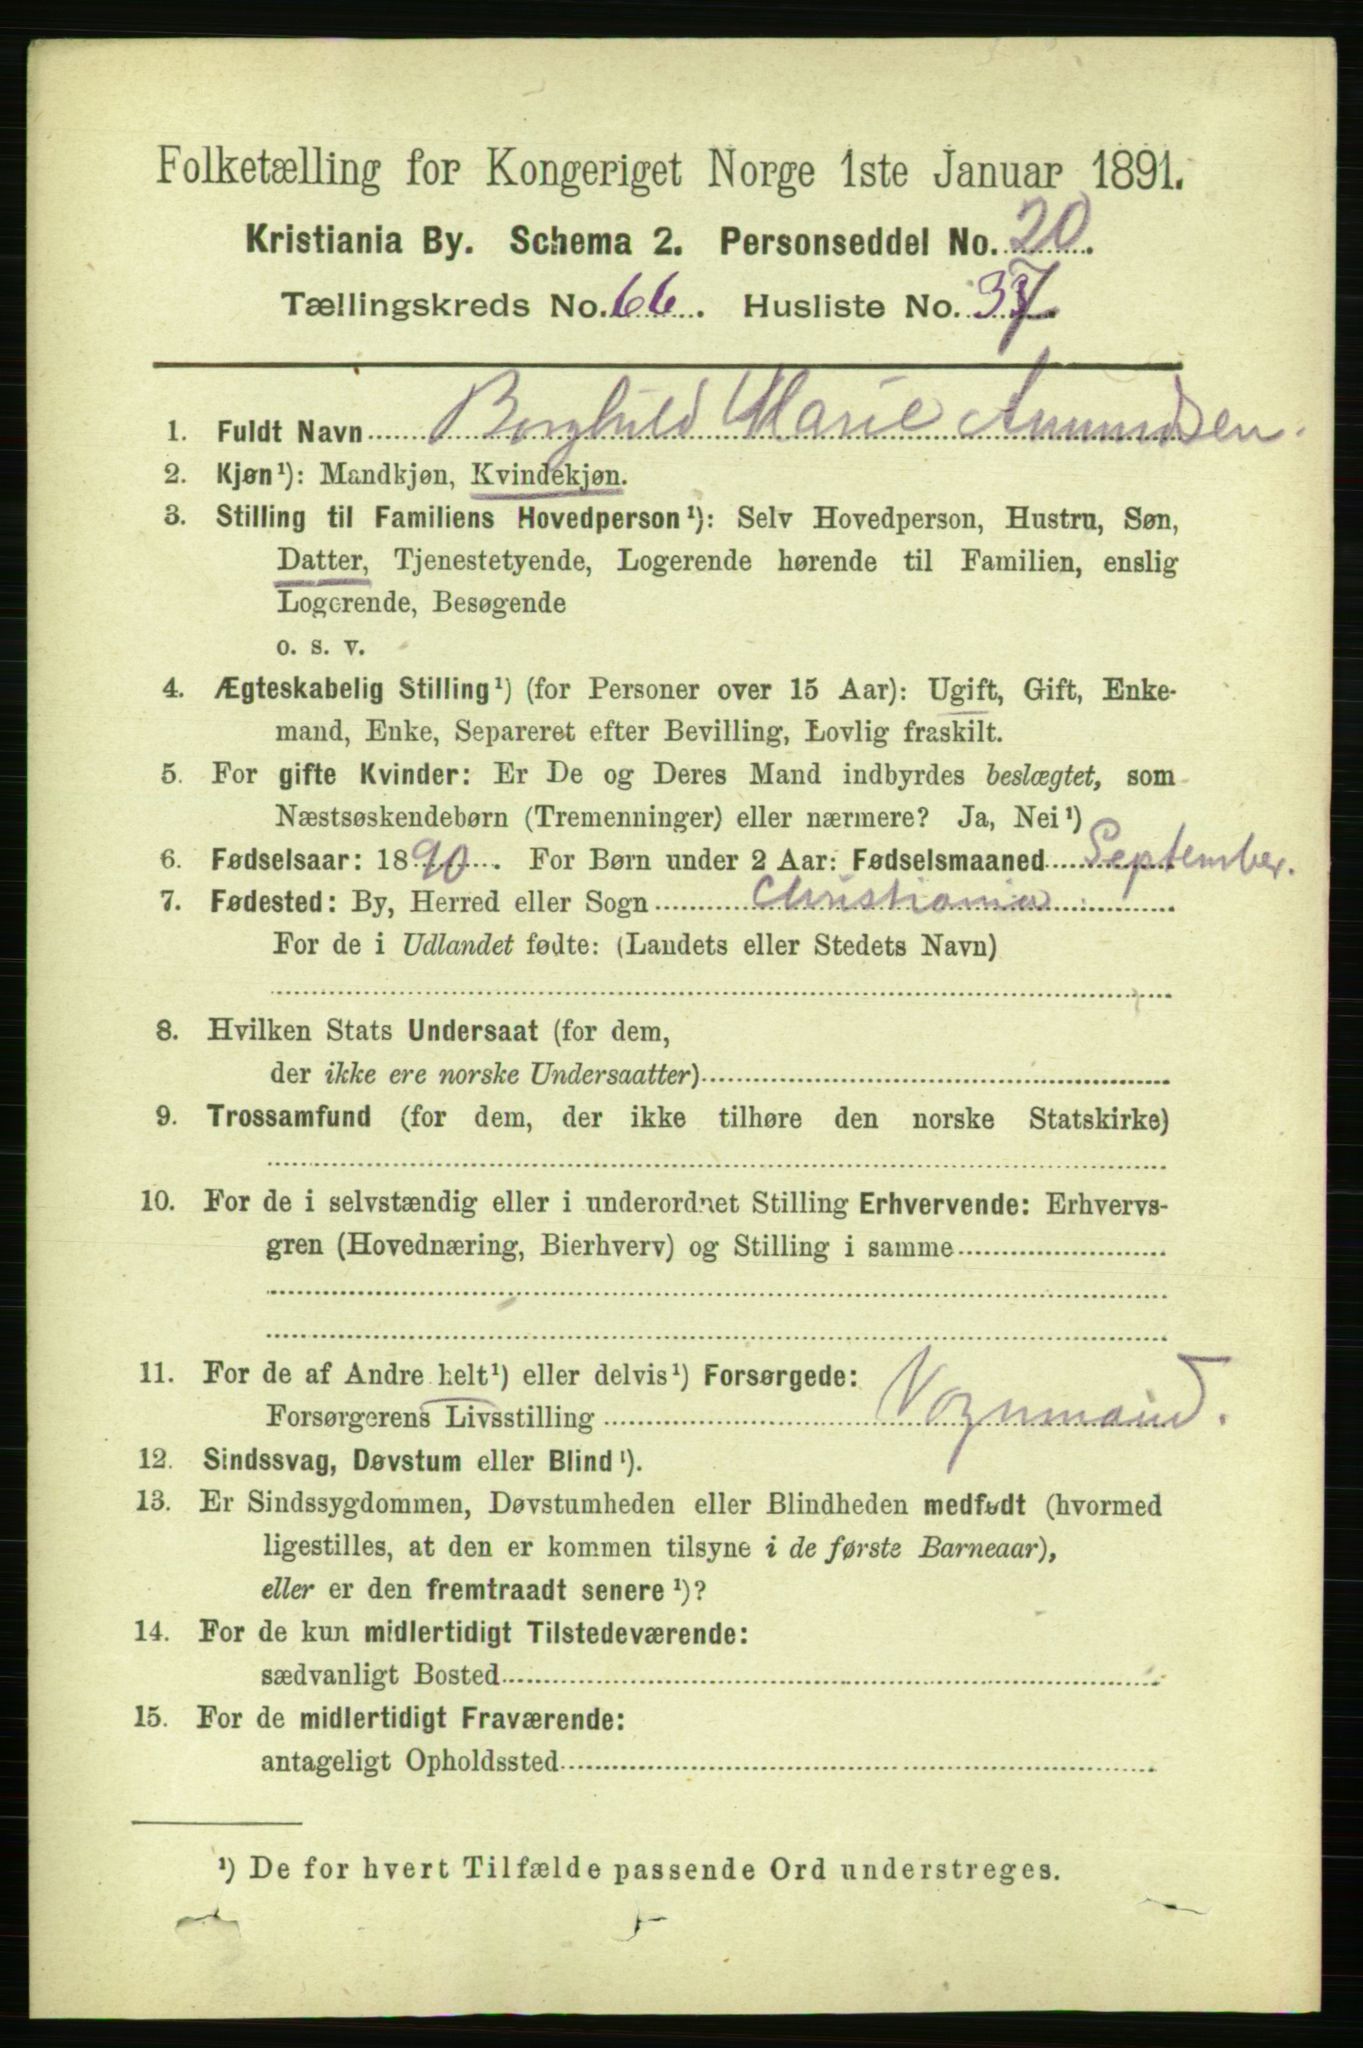 Folketælling for Kongeriget Norge 1ste Januar 1891.
Kristiania By. Schema 2. Personseddel No. 20.
Tællingskreds No. 66. Husliste No. 37.
1. Fuldt Navn Borghild Marie Amundsen.
2. Kjøn¹): Mandkjøn, Kvindekjøn.
3. Stilling til Familiens Hovedperson¹): Selv Hovedperson, Hustru, Søn,
Datter, Tjenestetyende, Logerende hørende til Familien, enslig
Logerende, Besøgende
o. s. v.
4. Ægteskabelig Stilling¹) (for Personer over 15 Aar): Ugift, Gift, Enke-
mand, Enke, Separeret efter Bevilling, Lovlig fraskilt.
5. For gifte Kvinder: Er De og Deres Mand indbyrdes beslægtet, som
Næstsøskendebørn (Tremenninger) eller nærmere? Ja, Nei¹)
6. Fødselsaar: 1890. For Børn under 2 Aar: Fødselsmaaned September.
7. Fødested: By, Herred eller Sogn Christiania
For de i Udlandet fødte: (Landets eller Stedets Navn)
8. Hvilken Stats Undersaat (for dem,
der ikke ere norske Undersaatter)
9. Trossamfund (for dem, der ikke tilhøre den norske Statskirke)
10. For de i selvstændig eller i underordnet Stilling Erhvervende: Erhvervs-
gren (Hovednæring, Bierhverv) og Stilling i samme
11. For de af Andre helt¹) eller delvis¹) Forsørgede:
Forsørgerens Livsstilling Vognmand.
12. Sindssvag, Døvstum eller Blind¹).
13. Er Sindssygdommen, Døvstumheden eller Blindheden medfødt (hvormed
ligestilles, at den er kommen tilsyne i de første Barneaar),
eller er den fremtraadt senere¹)?
14. For de kun midlertidigt Tilstedeværende:
sædvanligt Bosted
15. For de midlertidigt Fraværende:
antageligt Opholdssted
¹) De for hvert Tilfælde passende Ord understreges.